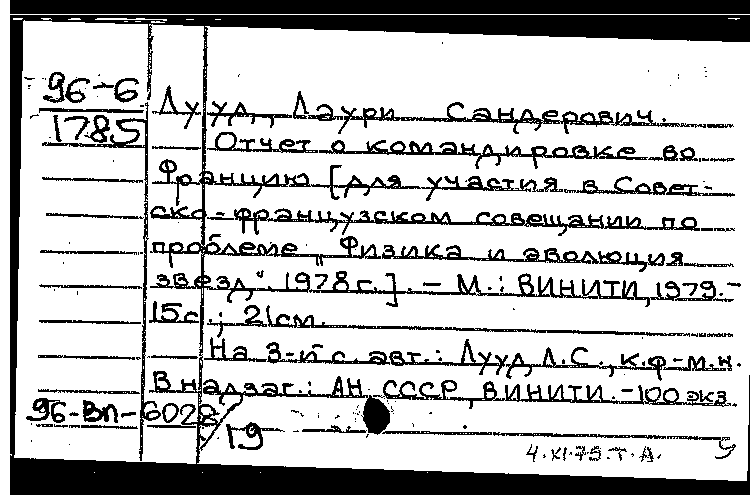 96-6
1785
Лууд, Лаури Сандерович.
Отчет о командировке во
Францию [для участия в Совет-
ско-французском совещании по
проблеме „Физика и эволюция
звезд“. 1978г.]. – М.: ВИНИТИ, 1979.–
15с.; 21см.
На 3-й с. авт.: Лууд Л.С., к.ф-м.н.
В надзаг.: АН СССР, ВИНИТИ.–100 экз
96-вп-6028/19
4.XI.79.Т.А.